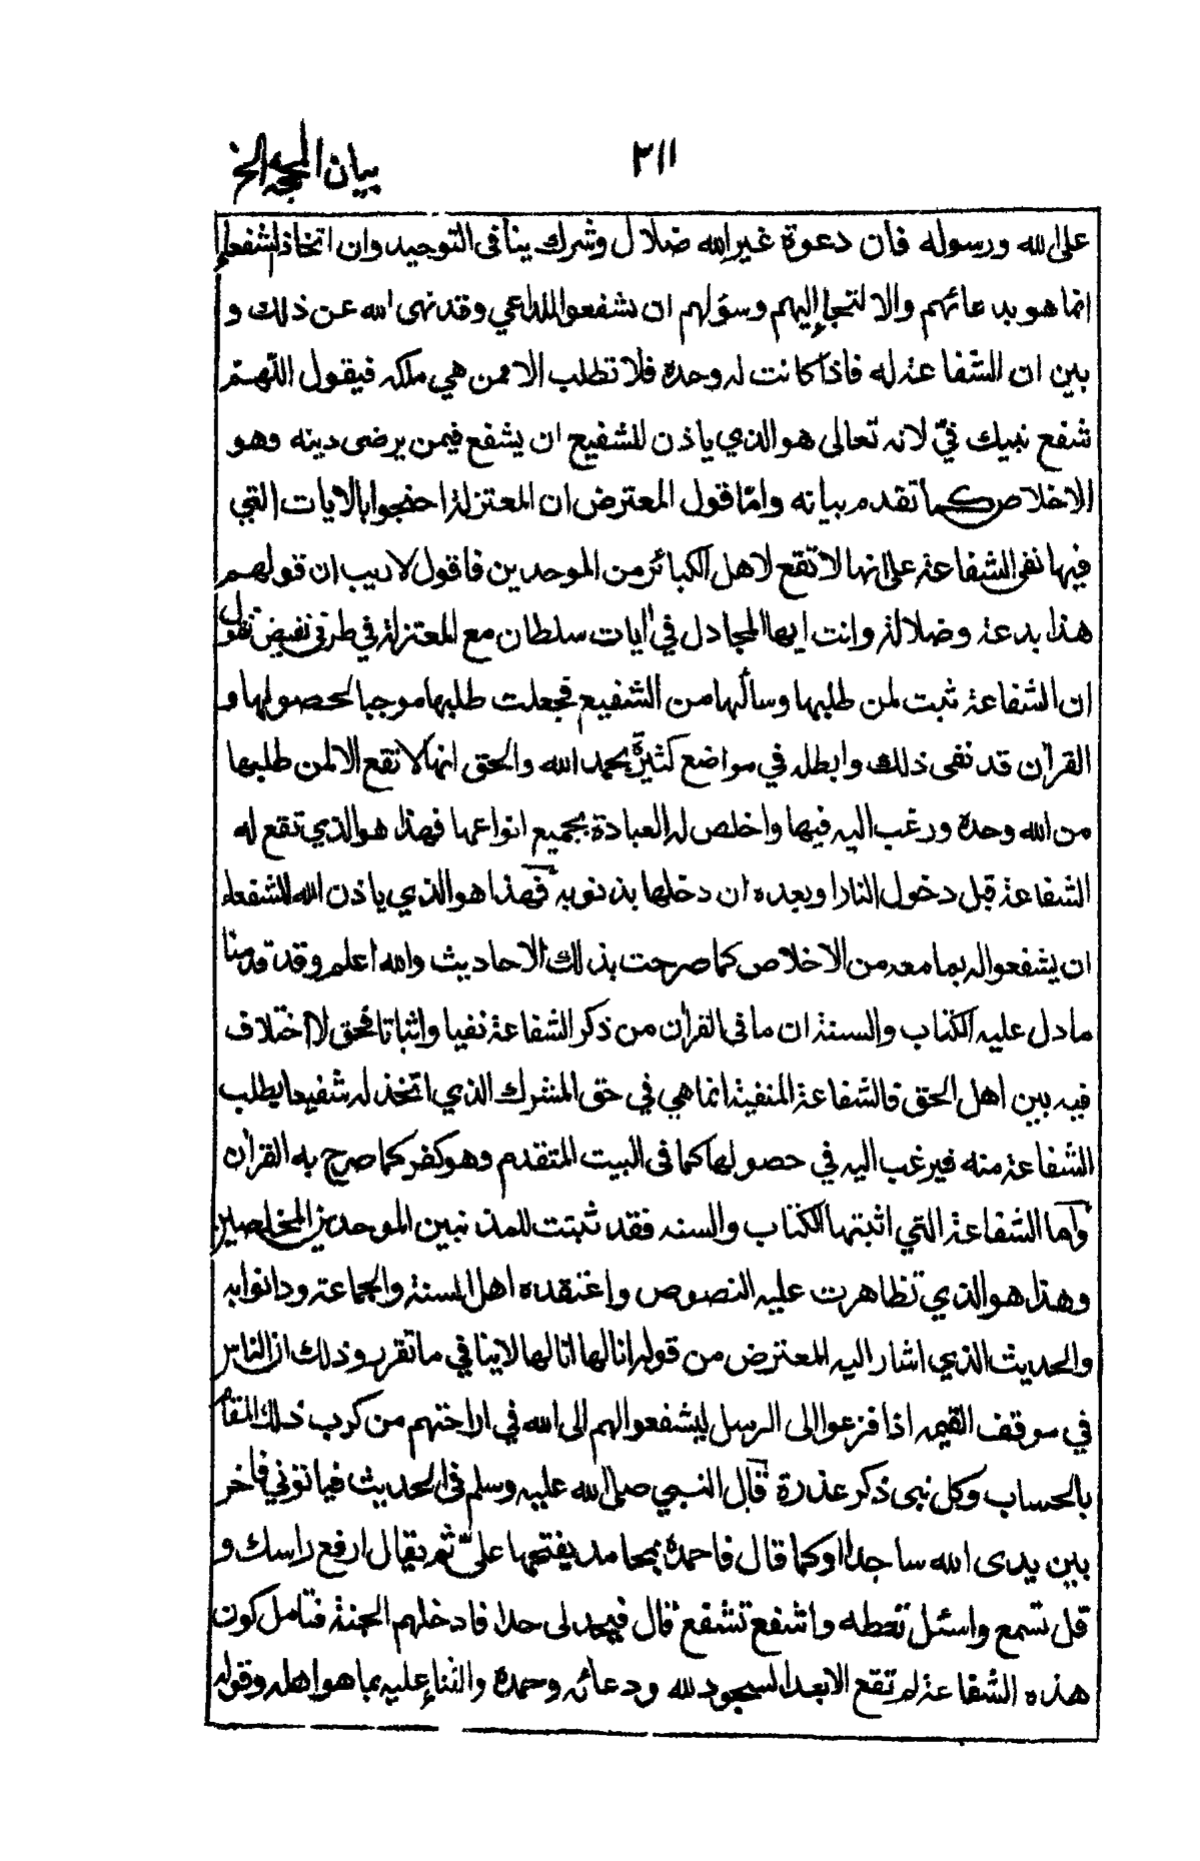 ٢١١ بيان المحجة الخ
على الله ورسوله فان دعوة غير الله ضلال وشرك ينافى التوحيد وان اتخاذ الشفعاء
انما هو بدعائهم والالتجاء اليهم وسؤلهم ان يشفعوا للداعي وقد نهى الله عن ذلك و
بين ان الشفاعة له فاذا كانت له وحده فلا تطلب الا ممن هي ملكه فيقول اللهم
شفع نبيك فيّ لانه تعالى هو الذي ياذن للشفيع ان يشفع فيمن يرضى دينه وهو
الاخلاص كما تقدم بيانه وامّا قول المعترض ان المعتزلة احتجوا بالايات التي
فيها نفى الشفاعة على انها لا تقع لاهل الكبائر من الموحدين فاقول لا ريب ان قولهم
هذا بدعة وضلالة وانت ايها المجادل في ايات سلطان مع المعتزلة في طرفي نقيض تقول
ان الشفاعة ثبت لمن طلبها وسألها من الشفيع فجعلت طلبها موجبا لحصولها و
القرآن قد نفى ذلك وابطله في مواضع كثيرة بحمد الله والحق انها لا تقع الا لمن طلبها
من الله وحده ورغب اليه فيها واخلص له العبادة بجميع انواعها فهذا هو الذي تقع له
الشفاعة قبل دخول النار او بعده ان دخلها بذنوبه فهذا هو الذي ياذن الله للشفعاء
ان يشفعوا له بما معه من الاخلاص كما صرحت بذلك الاحاديث والله اعلم وقد قدمنا
ما دل عليه الكتاب والسنة ان ما فى القرآن من ذكر الشفاعة نفيا واثباتا فحق لا اختلاف
فيه بين اهل الحق فالشفاعة المنفية انما هي في حق المشرك الذي اتخذ له شفيعا يطلب
الشفاعة منه فيرغب اليه في حصولها كما فى البيت المتقدم وهو كفر كما صرح به القرآن
واما الشفاعة التي اثبتها الكتاب والسنه فقد ثبتت للمذنبين الموحدين المخلصين
وهذا هو الذي تظاهرت عليه النصوص واعتقده اهل السنة والجماعة ودانوا به
والحديث الذي اشار اليه المعترض من قوله انا لها انا لها لا ينافي ما تقرر وذلك ان الناس
في موقف القيمه اذا فزعوا الى الرسل ليشفعوا لهم الى الله في اراحتهم من كرب ذلك المقام
بالحساب وكل نبى ذكر عذره قال النبي صلى الله عليه وسلم فى الحديث فياتوني فاخر
بين يدى الله ساجدا او كما قال فاحمده بمحامد يفتحها عليّ ثم يقال ارفع راسك و
قل تسمع واسئل تعطه واشفع تشفع قال فيحد لى حدا فادخلهم الجنة فتامل كون
هذه الشفاعة لم تقع الا بعد السجود لله ودعائه وحمده والثناء عليه بما هو اهله وقوله